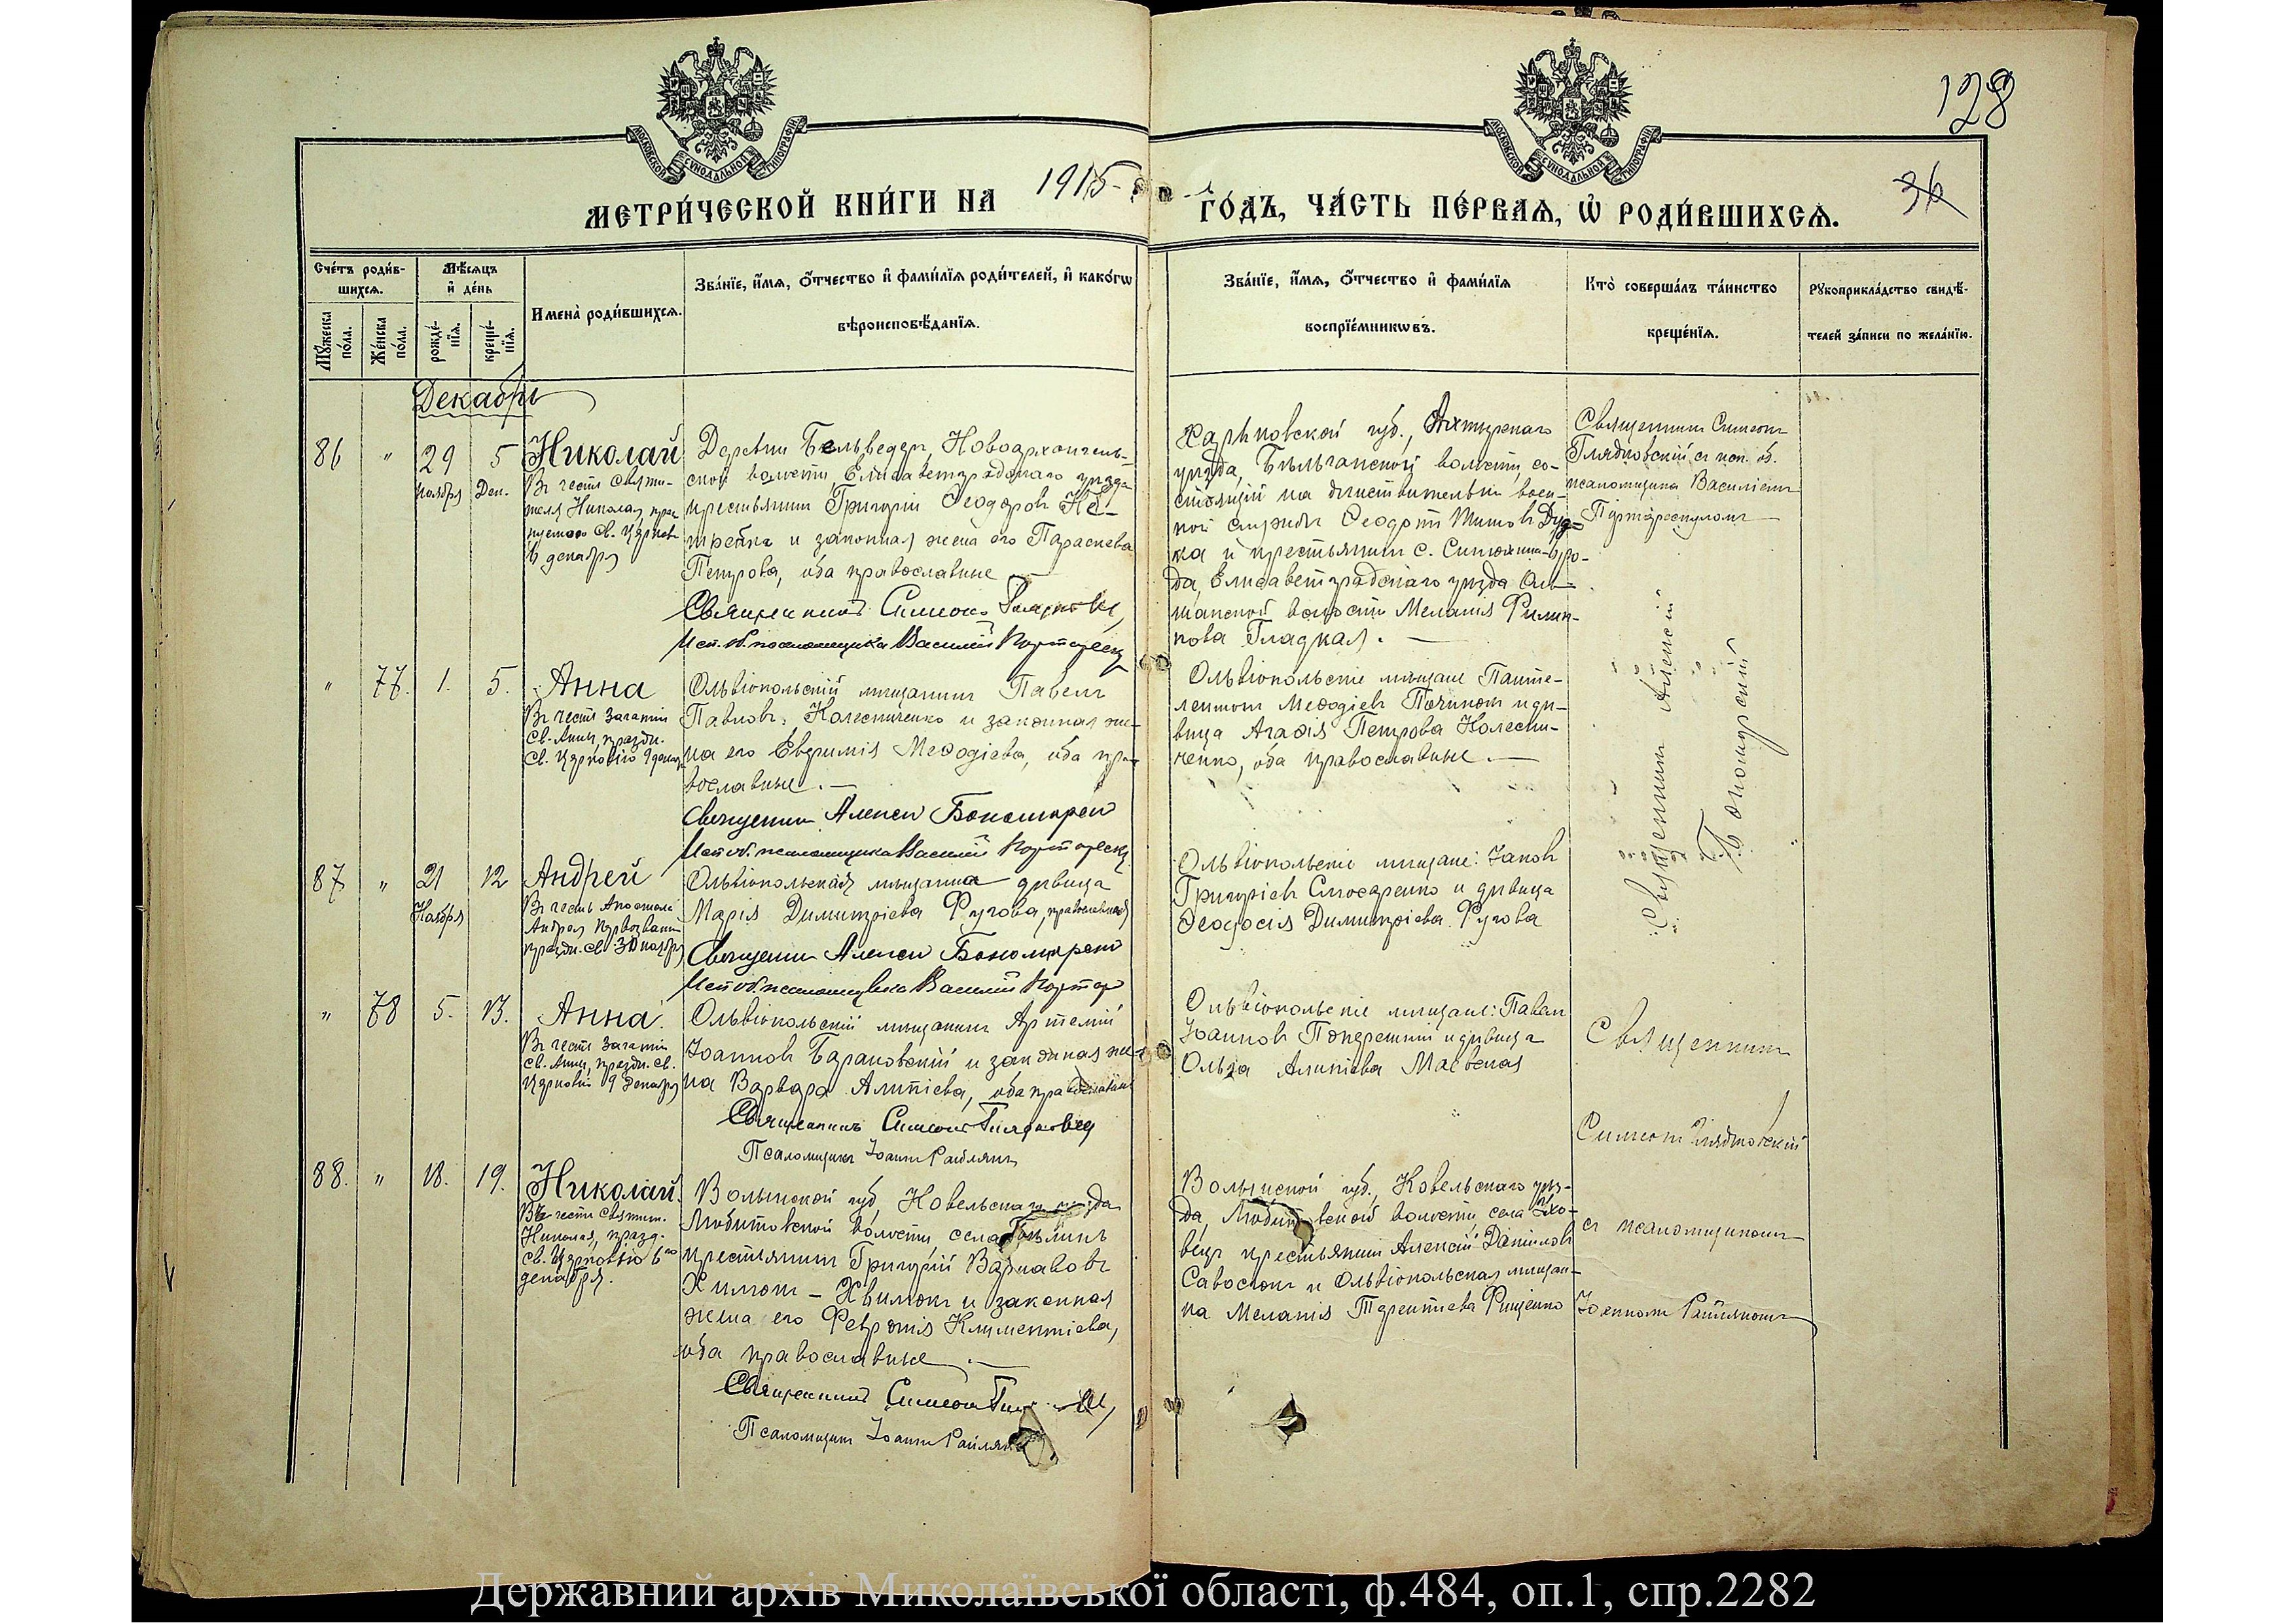 128
МОСКОВСКОЙ СѴНОДАЛЬНОЙ ТИПОГРАФІИ
МОСКОВСКОЙ СѴНОДАЛЬНОЙ ТИПОГРАФІИ
МЕТРИ́ЧЕСКОЙ КНИ́ГИ НА 1915 го́дъ, ЧА́СТЬ ПЕ́РВАѦ, Ѡ҆ РОДИ́ВШИХСѦ.
36
Сче́тъ роди́в-
шихсѧ.
Мѣ́сѧцъ
и҆ де́нь
Мꙋ́жеска по́ла.
Же́нска по́ла.
рожде́-
нїѧ.
креще́-
нїѧ.
Имена̀ роди́вшихсѧ.
Зва́нїе, и҆́мѧ, ѻ҆́тчество и҆ фами́лїѧ роди́телей, и҆ како́гѡ
вѣроисповѣ́данїѧ.
Зва́нїе, и҆́мѧ, ѻ҆́тчество и҆ фами́лїѧ
воспрїе́мникѡвъ.
Кто̀ соверша́лъ та́инство
креще́нїѧ.
Рꙋкоприкла́дство свидѣ́-
телей за́писи по жела́нїю.
Декабрь
86 " 29 5 Николай
ноября Дек.
Въ честь Святи-
теля Николая
Св. Церков
6 декабря
Деревни Бельведер, Новоархангель-
ской волости, Елисаветградскаго уезда
крестьянин Григорій Ѳеодоров Не-
и законная жена его Параскева
Петрова, оба православные
Священник Симеон
Исп. об. псаломщика Василій Портареску
Харьковской губ., Ахтырскаго
уезда, волости, со-
стоящій на действительной воен-
ной службе Ѳеодот Титов Дуд-
ка и крестьянин с. Синюхина-Бро-
да, Елисаветградскаго уезда Оль-
шанской волости Меланія Филип-
пова Гладкая.
Священник Симеон
с исп. об.
псаломщика Василіем
Портарескулом
" 77. 1. 5. Анна
Въ честь Зачатія
Св. Анны, праздн.
Св. Церковію 9 декабр
Ольвіопольскій мещанин Павел
Павлов Колесниченко и законная же-
на его Евфимія Меѳодіева, оба пра-
вославные.
Священник Алексей
Исп. об. псаломщика Василій Портареску
Ольвіопольскіе мещане Панте-
леимон Меѳодіев и де-
вица Агаѳія Петрова Колесни-
ченко, оба православные.
Священник Алексей
87 " 21 12 Андрей
Ноября
Въ честь Апостола
Андрея Первозванн
праздн. св. 30 ноября
Ольвіопольская мещанка девица
Марія Димитріева православная
Священник Алексей
Исп. об. псаломщика Василій Портар
Ольвіопольскіе мещане: Іаков
Григоріев Слюсаренко и девица
Ѳеодосія Димитріева
" 78 5. 13. Анна
Въ честь Зачатія
Св. Анны, праздн. св.
Церковію 9 декабря
Ольвіопольскій мещанин Артемій
Іоаннов Барановскій и законная же-
на Варвара Алипіева, оба православные
Священник Симеон
Псаломщик Іоанн Райлян
Ольвіопольскіе мещане: Павел
Іоаннов и девица
Ольга Алипіева
Священник
Симеон
88. " 18. 19. Николай
Въ честь Святит.
Николая, празд.
св. Церковію 6го
декабря.
Волынской губ., Ковельскаго уезда
Любитовской волости, села
крестьянин Григорій Варнавов
Химюк - Квилюк и законная
жена его Февронія Климентіева,
оба православные.
Священник Симеон
Псаломщик Іоанн Райлян
Волынской губ., Ковельскаго уез-
да, Любитовской волости, села
крестьянин Алексій Даніилов
Савосюк и Ольвіопольская мещан-
ка Меланія Терентіева
с псаломщиком
Іоанном Райляном
Державний архів Миколаївської області, ф.484, оп.1, спр.2282